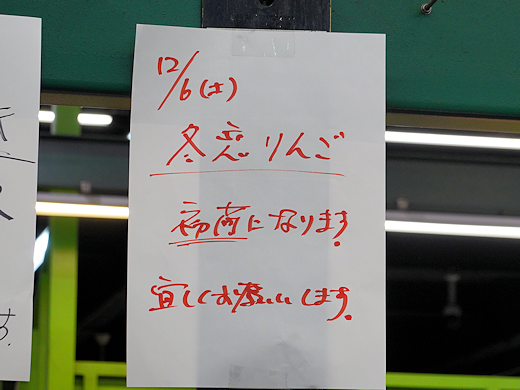 12/6(土)
冬恋りんご
初荷になります。
宜しくお願いします。
す.